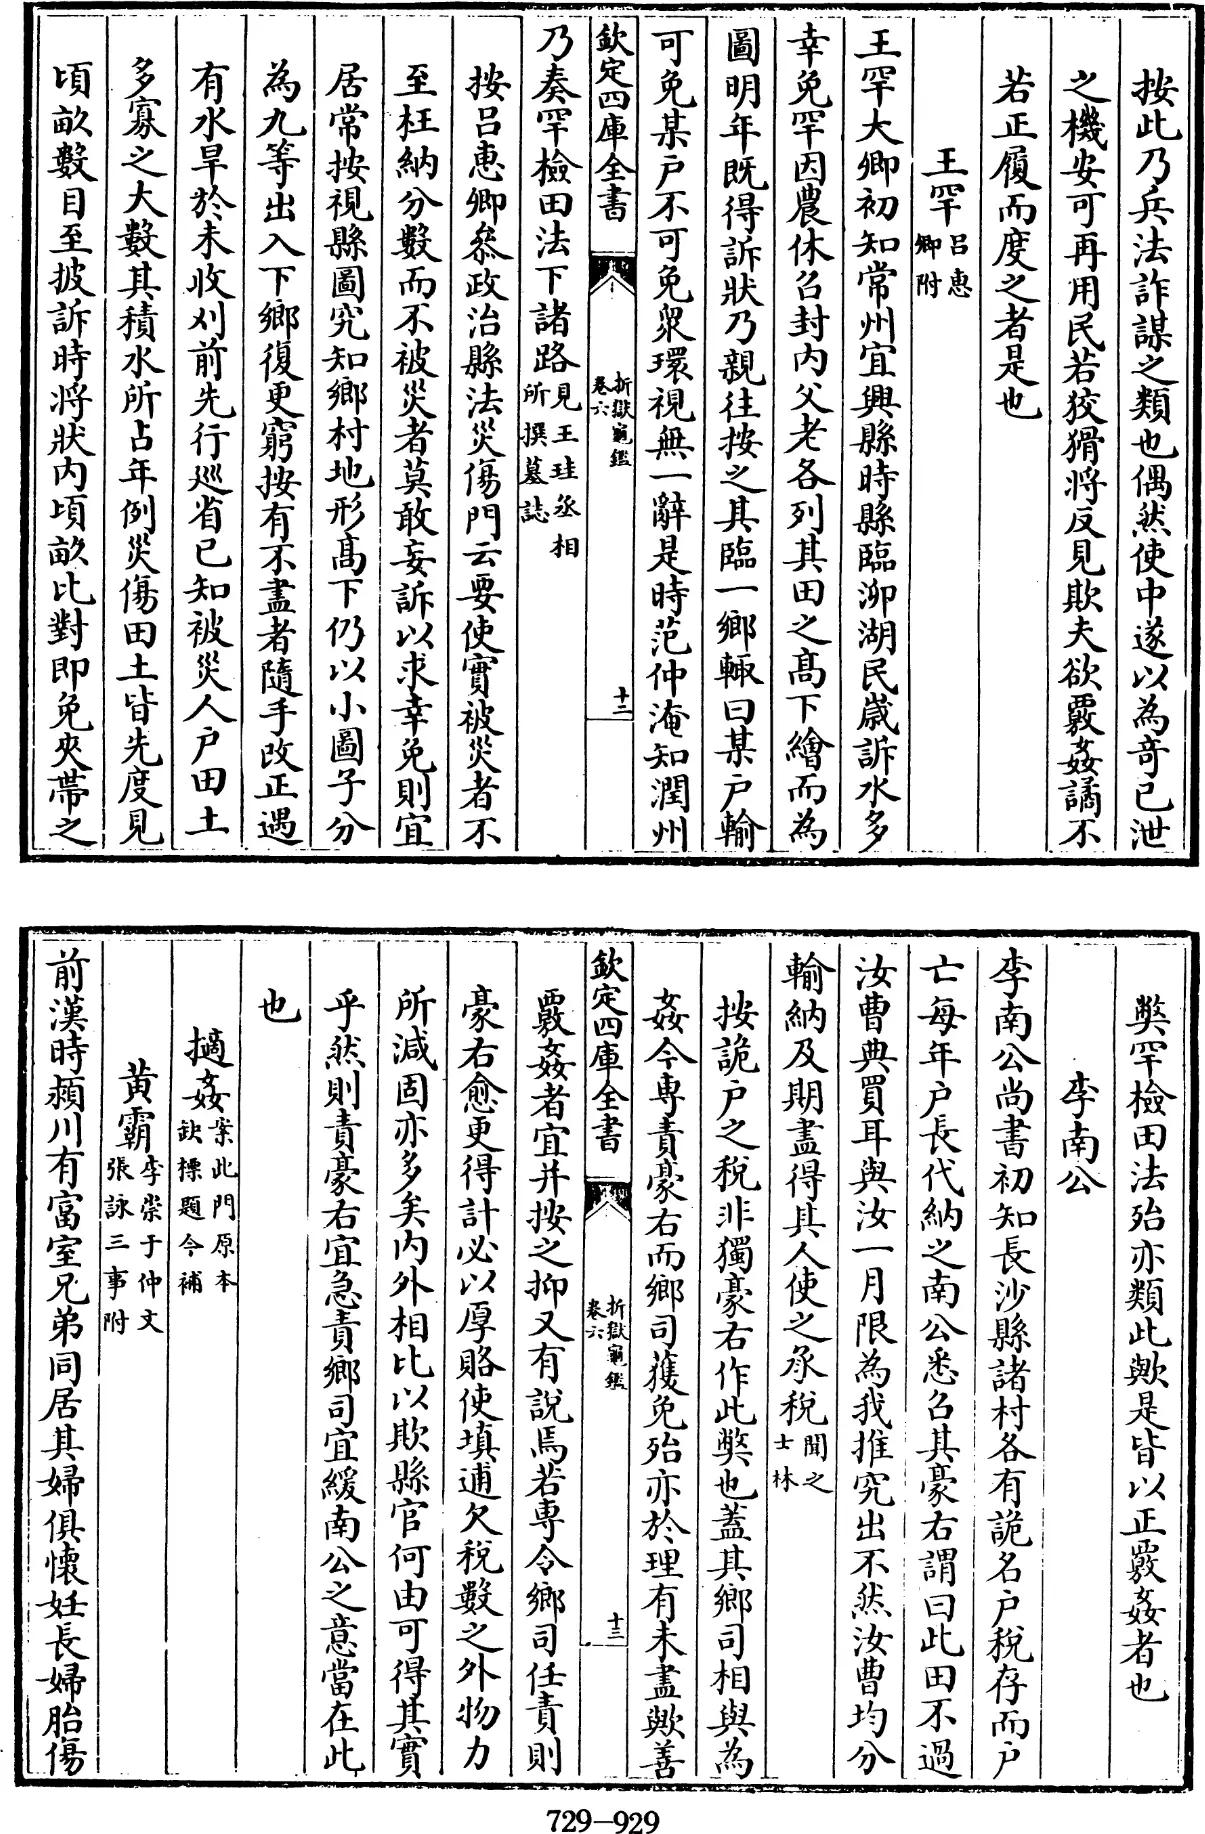 按此乃兵法詐謀之類也偶然使中遂以為奇已泄
之機安可再用民若狡猾將反見欺夫欲覈姦譎不
若正履而度之者是也
王罕呂惠卿附
王罕大卿初知常州宜興縣時縣臨泖湖民嵗訴水多
幸免罕因農休召封内父老各列其田之髙下繪而為
圖明年既得訴狀乃親往按之其臨一鄉輙曰某户輸
可免某户不可免衆環視無一辭是時范仲淹知潤州
欽定四庫全書
折獄龜鑑
卷六
十二
乃奏罕檢田法下諸路見王珪丞相所撰墓誌
按呂惠卿叅政治縣法災傷門云要使實被災者不
至枉納分數而不被災者莫敢妄訴以求幸免則宜
居常按視縣圖究知鄉村地形髙下仍以小圖子分
為九等出入下鄉復更窮按有不盡者隨手改正遇
有水旱於未收刈前先行巡省已知被災人户田土
多寡之大數其積水所占年例災傷田土皆先度見
頃畝數目至披訴時將狀内頃畝比對即免夾帶之
弊罕檢田法殆亦類此歟是皆以正覈姦者也
李南公
李南公尚書初知長沙縣諸村各有詭名户税存而户
亡每年户長代納之南公悉召其豪右謂曰此田不過
汝曹典買耳與汝一月限為我推究出不然汝曹均分
輸納及期盡得其人使之承税聞之士林
按詭户之税非獨豪右作此弊也蓋其鄉司相與為
姦今専責豪右而鄉司獲免殆亦於理有未盡歟善
欽定四庫全書
折獄龜鑑
卷六
十三
覈姦者宜并按之抑又有説焉若専令鄉司任責則
豪右愈更得計必以厚賂使填逋欠税數之外物力
所減固亦多矣内外相比以欺縣官何由可得其實
乎然則責豪右宜急責鄉司宜緩南公之意當在此
也
擿姦案此門原本缺標題今補
黄霸李崇于仲文張詠三事附
前漢時潁川有富室兄弟同居其婦俱懷妊長婦胎傷
729–929